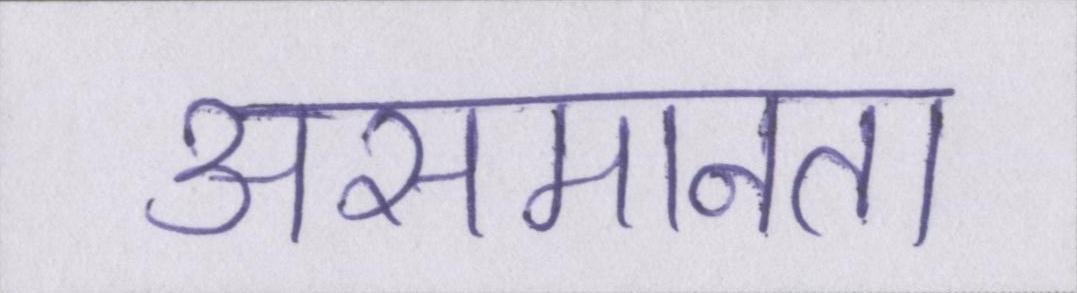 असमानता